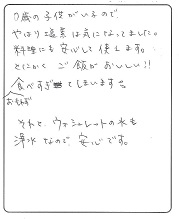 0歳の子供がいるので
やはり塩素は気になってました。
料理にも安心して使えます。
とにかく ご飯がおいしい!!
食べすぎてしまいます。
おもわず
それと、ウォシュレットの水も
浄水なので 安心です。